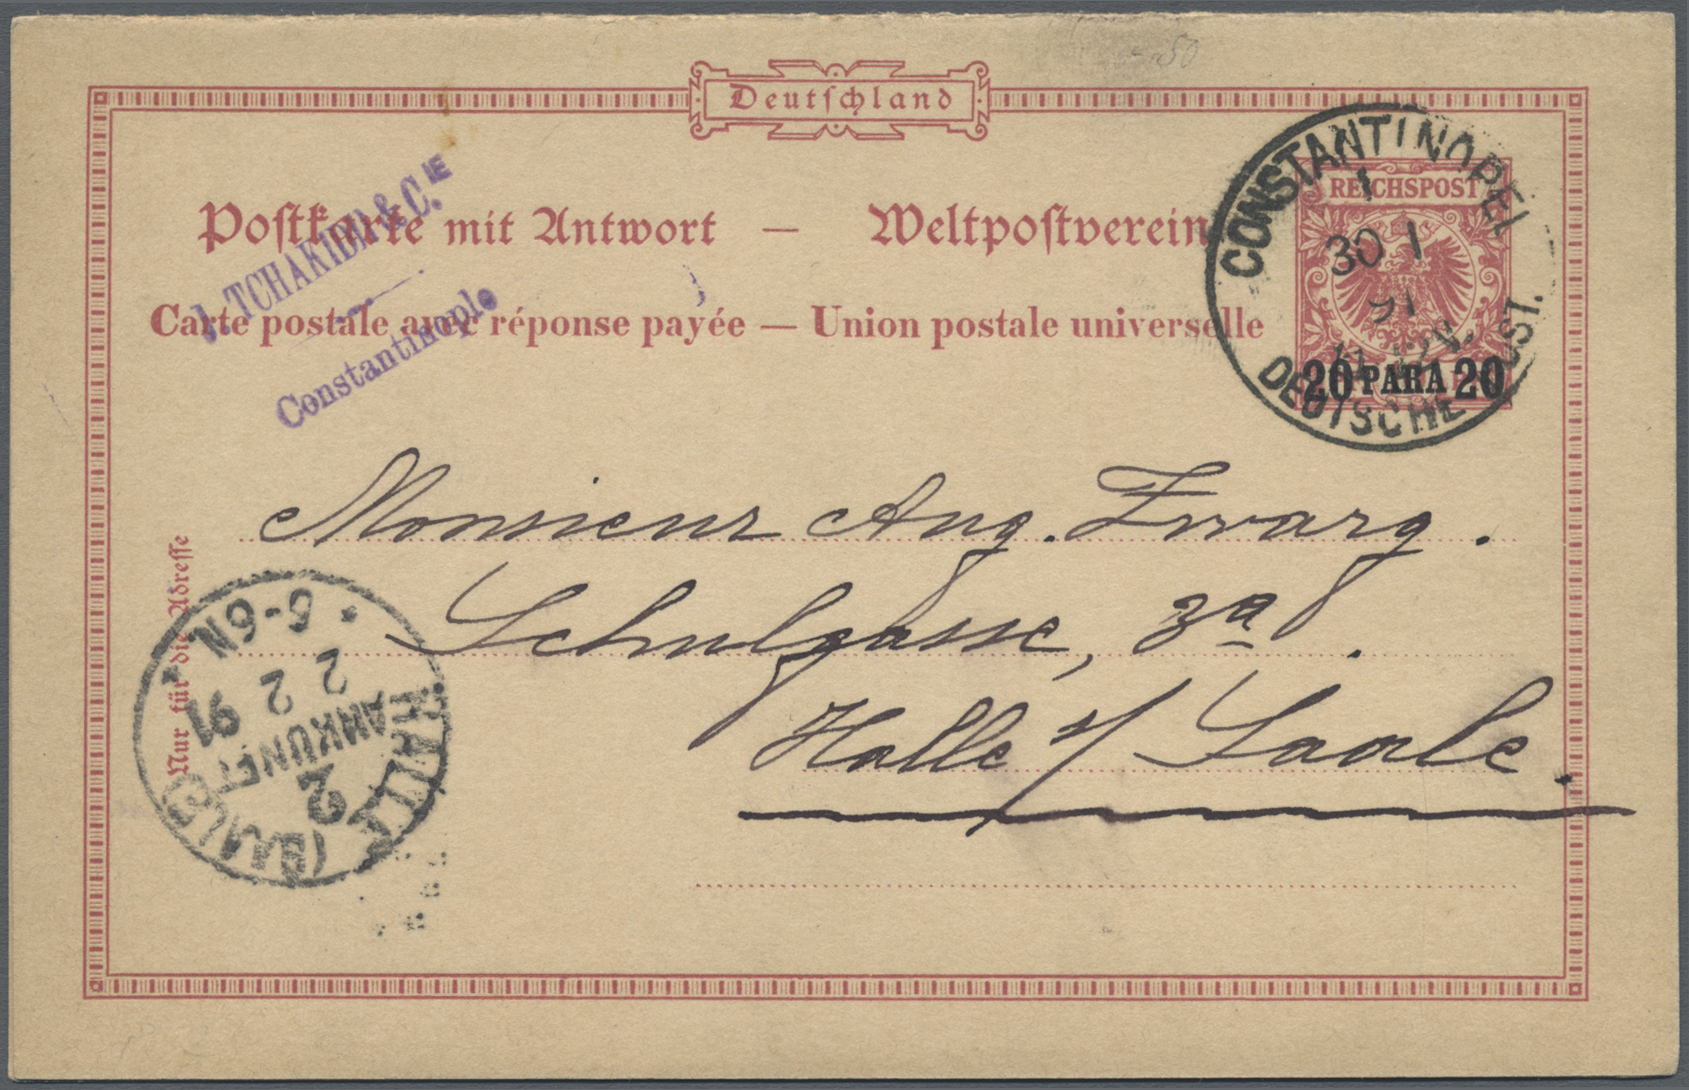 50
Deutschland
Postkarte mit Antwort — Weltpostverein
Carte postale avec réponse payée — Union postale universelle
TCHAKIDJI & C.IE
Constantinople
CONSTANTINOPEL
1
30 1
91
DEUTSCHE POST.
REICHSPOST
20 PARA 20
Monsieur Aug. Zwarg.
Schulgasse, 3a.
Halle a/ Saale.
Nur für die Adresse
HALLE (SAALE)
2
ANKUNFT
2 2 91
5-6N